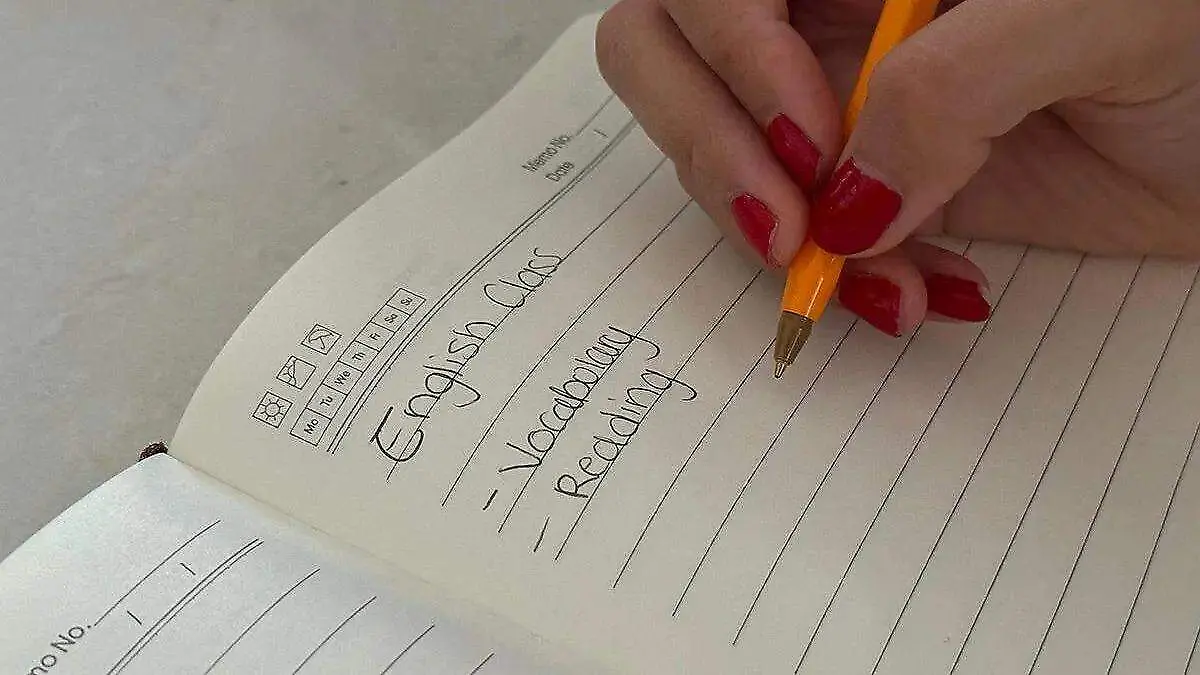 Memo No.
Date /
Mo Tu We Th Fr Sa Su
English Class
- Vocabolary
- Reading
mo No.
/ /